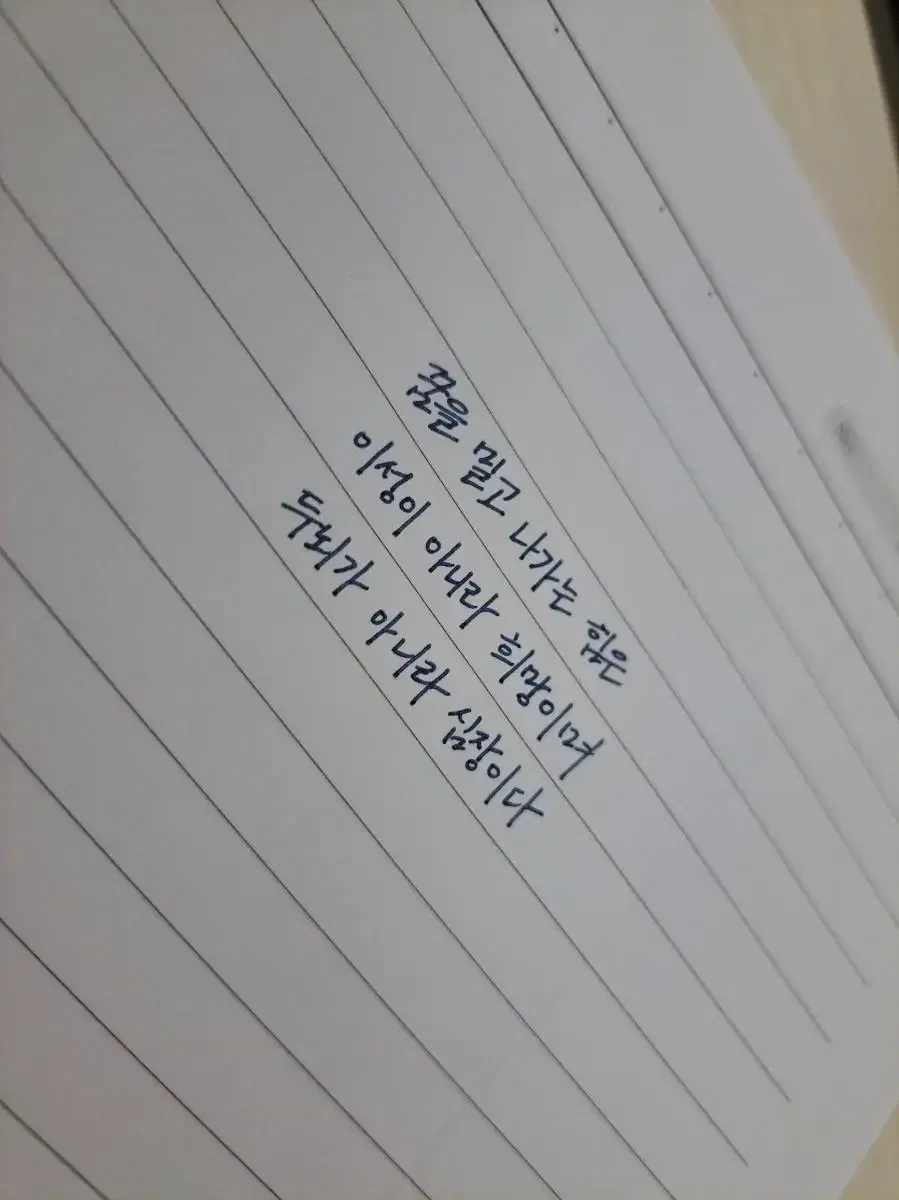 꿈을 밀고 나가는 힘은
이성이 아니라 희망이며
두뇌가 아니라 심장이다